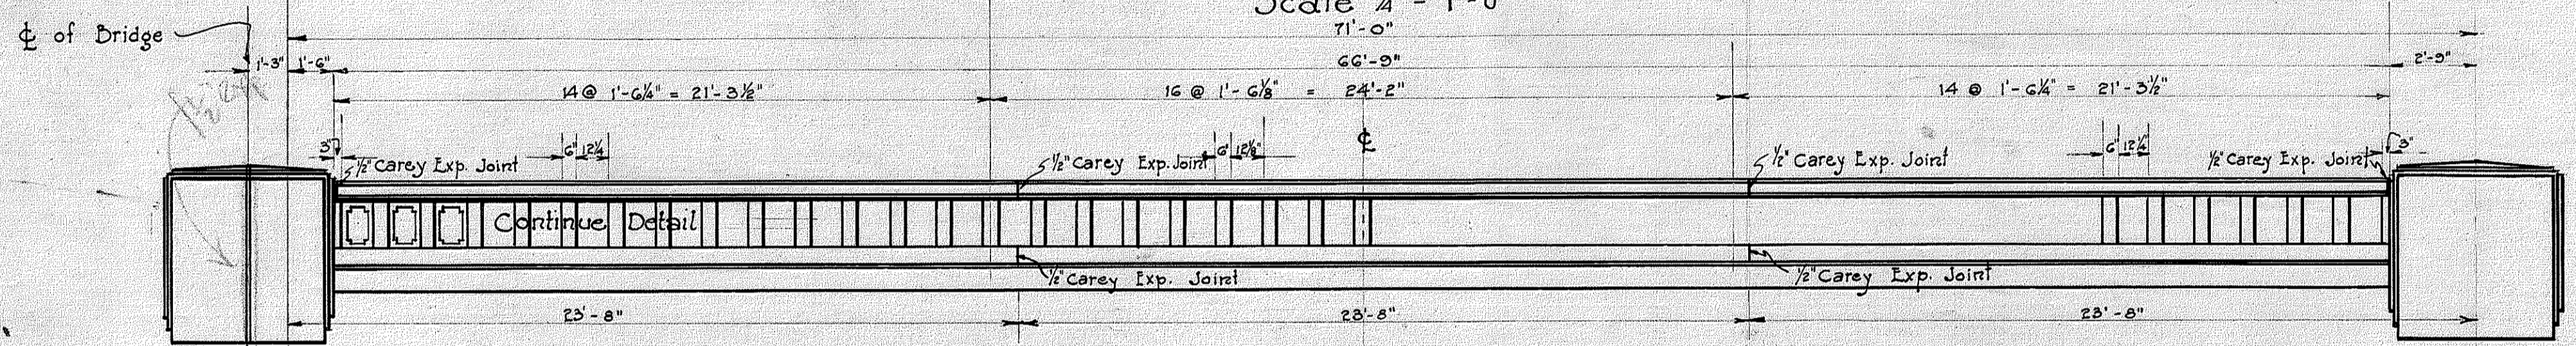 Scale ¼" = 1'-0"
71'-0"
₵ of Bridge
1'-3" 1'-6" 66'-9" 2'-9"
14 @ 1'-6¼" = 21'-3½" 16 @ 1'-6⅛" = 24'-2" 14 @ 1'-6¼" = 21'-3½"
3" 6" 12¼" 6" 12⅛" ₵ 6" 12¼" 3"
½" Carey Exp. Joint ½" Carey Exp. Joint ½" Carey Exp. Joint ½" Carey Exp. Joint
Continue Detail
½" Carey Exp. Joint ½" Carey Exp. Joint
23'-8" 23'-8" 23'-8"